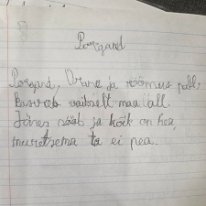 Porgand
Porgand, Oranž ja rõõmus pall,
Kasvab vaikselt maa all.
Jänes sööb ja kõik on hea,
muretsema ta ei pea.